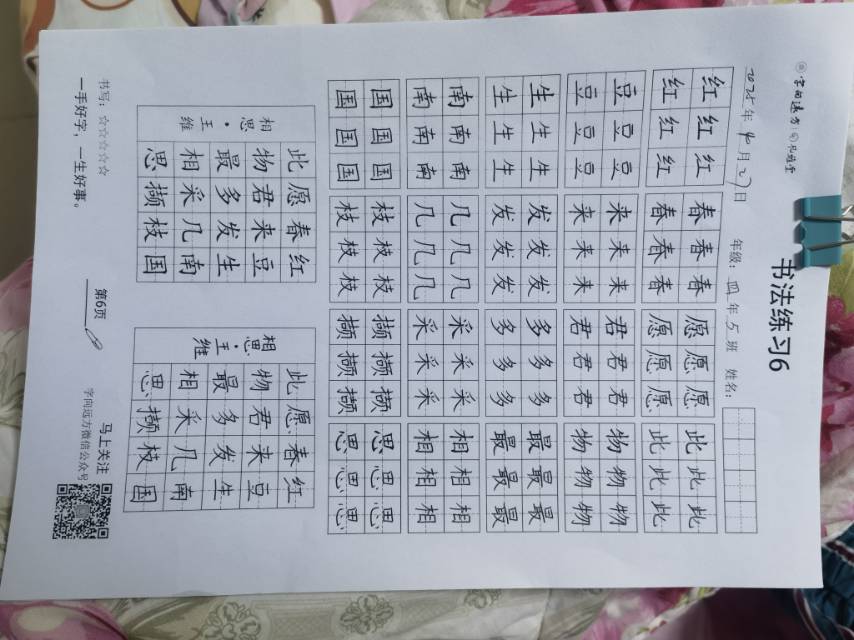 书法练习6
年级：四年5班 姓名：
红红红春春春愿愿愿此此此
红红红春春春愿愿愿此此此
豆豆豆来来来君君君物物物
豆豆豆来来来君君君物物物
生生生发发发多多多最最最
生生生发发发多多多最最最
南南南几几几采采采相相相
南南南几几几采采采相相相
国国国枝枝枝撷撷撷思思思
国国国枝枝枝撷撷撷思思思
相思·王维
红豆生南国
春来发几枝
愿君多采撷
此物最相思
相思·王维
红豆生南国
春来发几枝
愿君多采撷
此物最相思
书写：☆☆☆☆☆
一手好字，一生好事。
第6页
马上关注
字向远方微信公众号